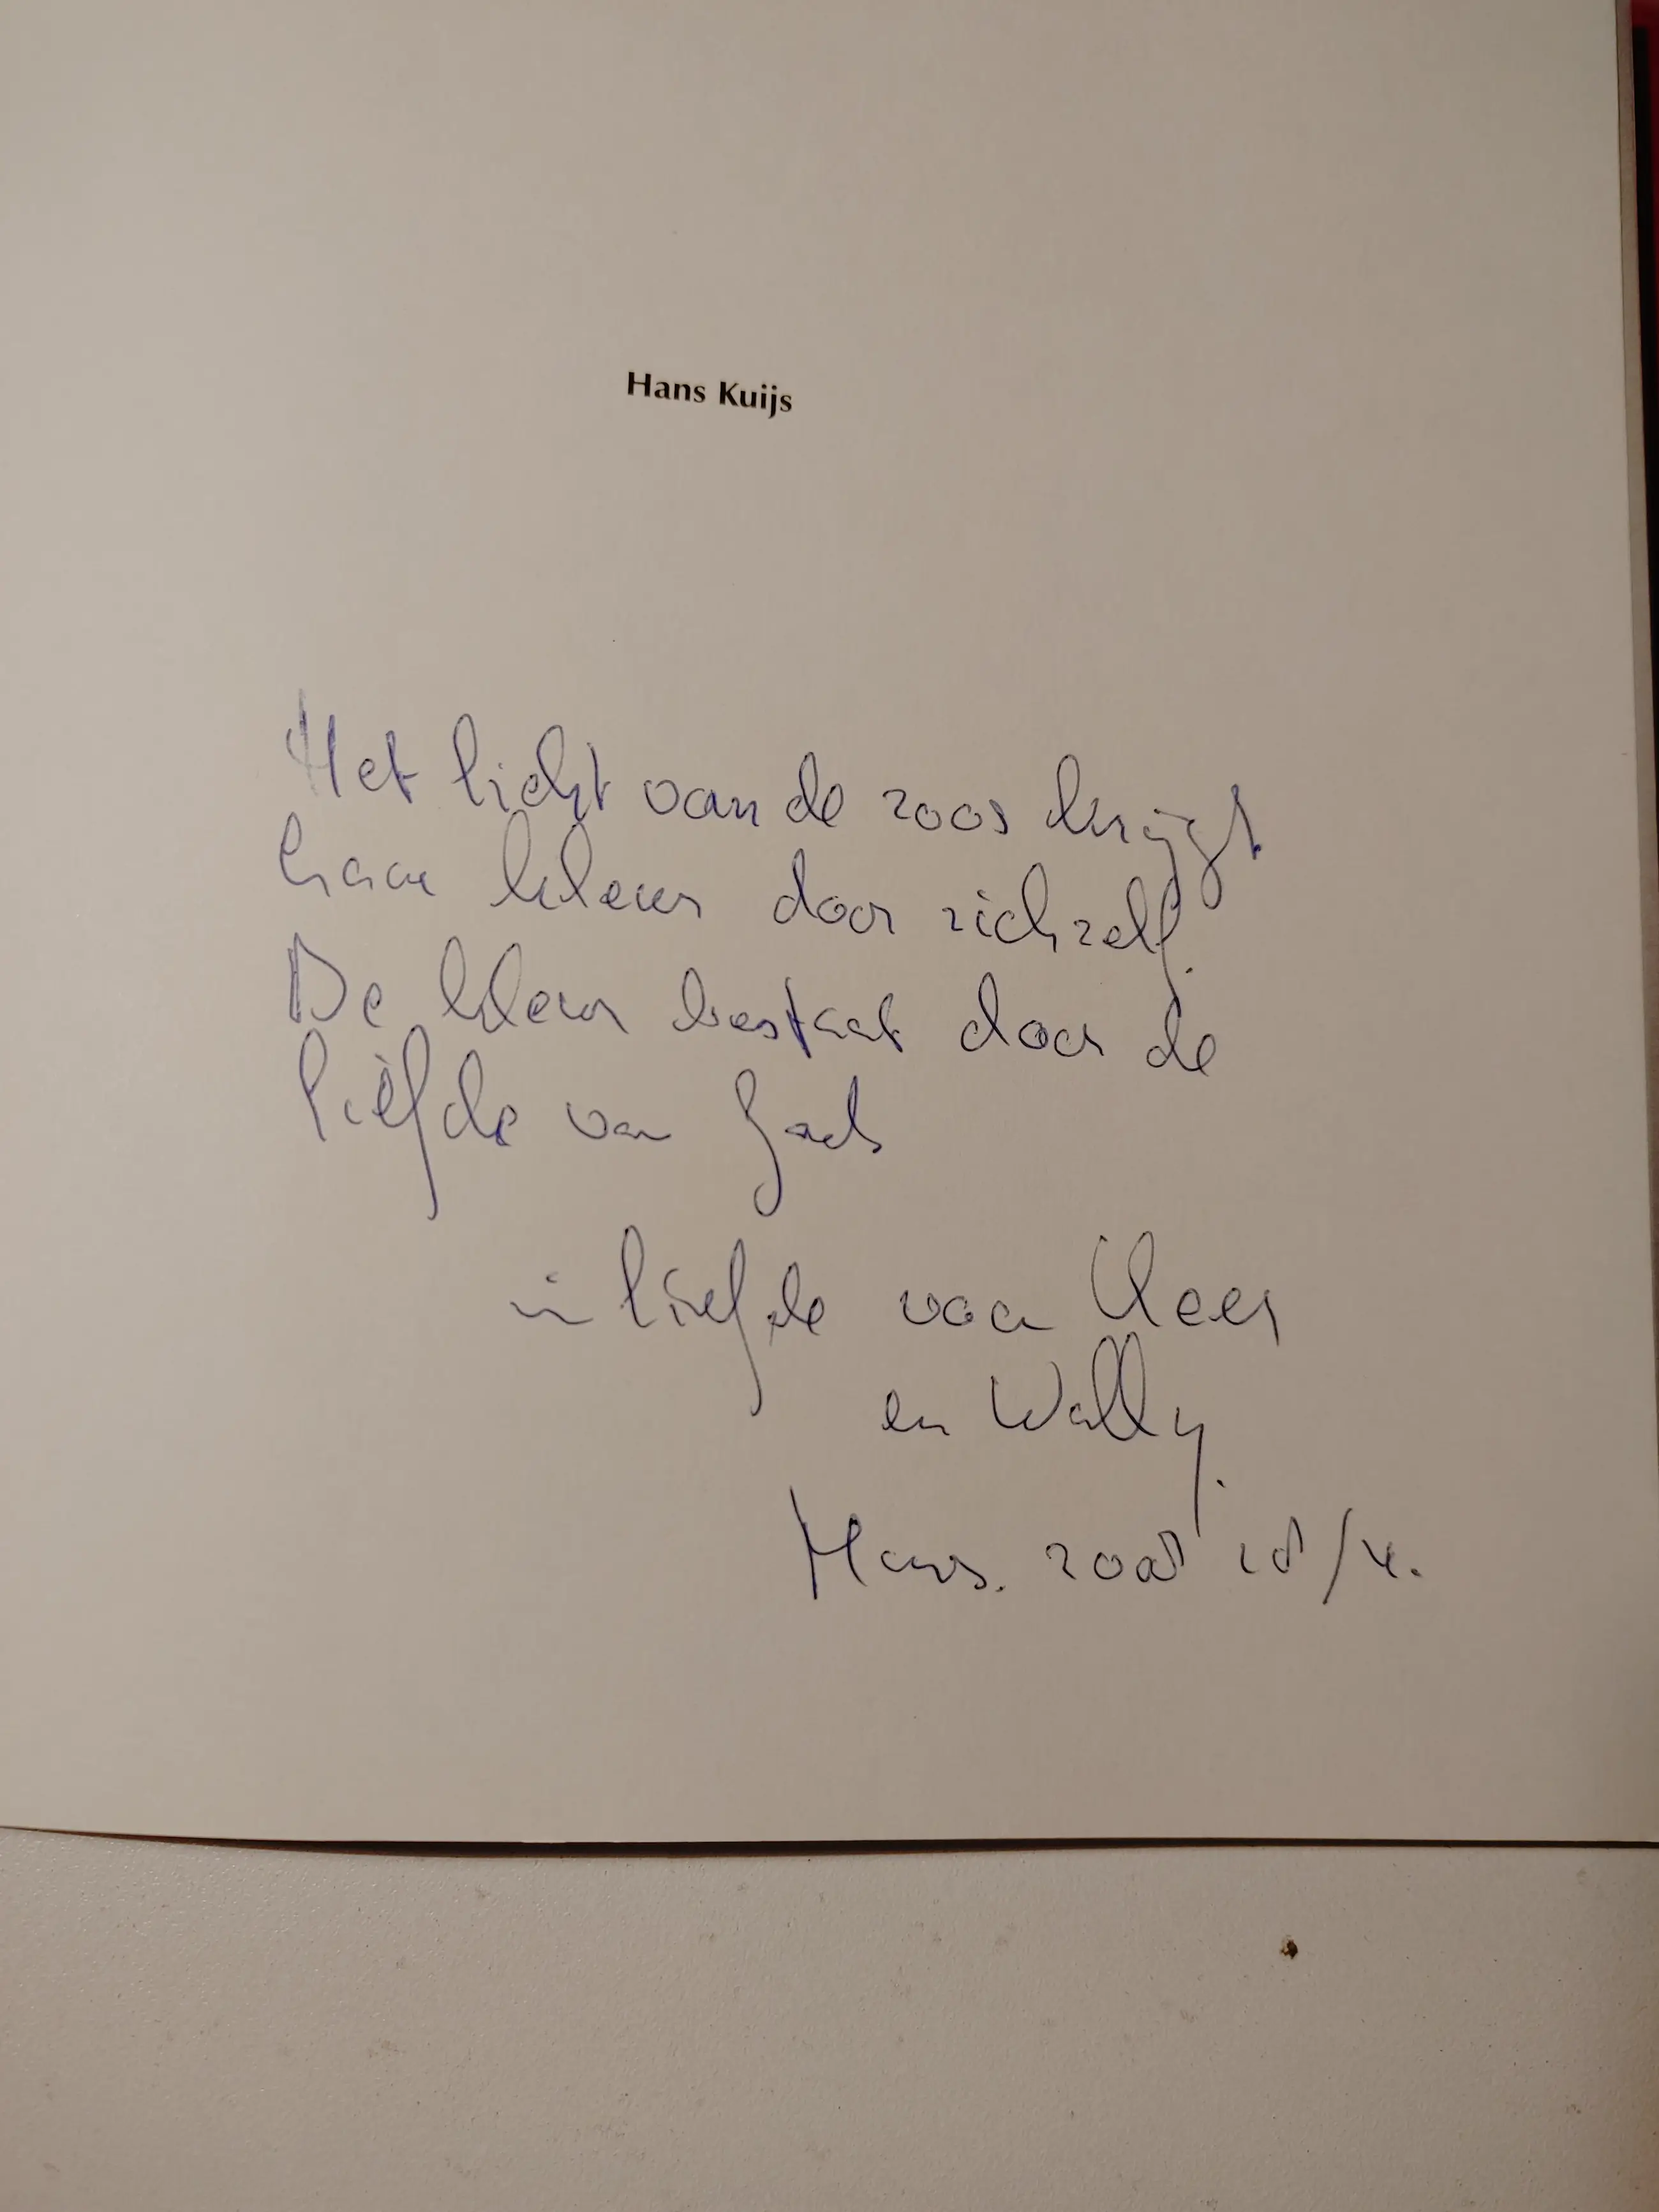 Hans Kuijs
Het licht van de roos krijgt
haar kleur door zichzelf.
De kleur bestaat door de
liefde van Gods
in liefde voor Kees
en Wally.
Hans. 2008 /4.